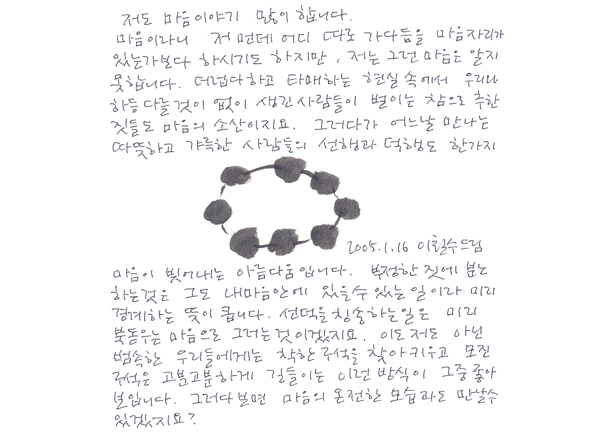 저도 마음이야기 많이 합니다.
마음이라니 저 먼데 어디 따로 가다듬을 마음자리가
있는가보다 하시기도 하지만, 저는 그런 마음은 알지
못합니다. 더럽다하고 타매하는 현실 속에서 우리나
하등 다를것이 없이 생긴 사람들이 벌이는 참으로 추한
짓들도 마음의 소산이지요. 그러다가 어느날 만나는
따뜻하고 갸륵한 사람들의 선행과 덕행도 한가지
2005.1.16 이철수드림
마음이 빚어내는 아름다움입니다. 부정한 짓에 분노
하는것은 그도 내마음안에 있을수 있는 일이라 미리
경계하는 뜻이 큽니다. 선덕을 칭송하는일은 미리
북돋우는 마음으로 그러는 것이겠지요. 이도 저도 아닌
범속한 우리들에게는 착한 구석을 찾아키우고 모진
구석은 고분고분하게 길들이는 이런 방식이 그중 좋아
보입니다. 그러다 보면 마음의 온전한 모습과도 만날수
있겠지요?